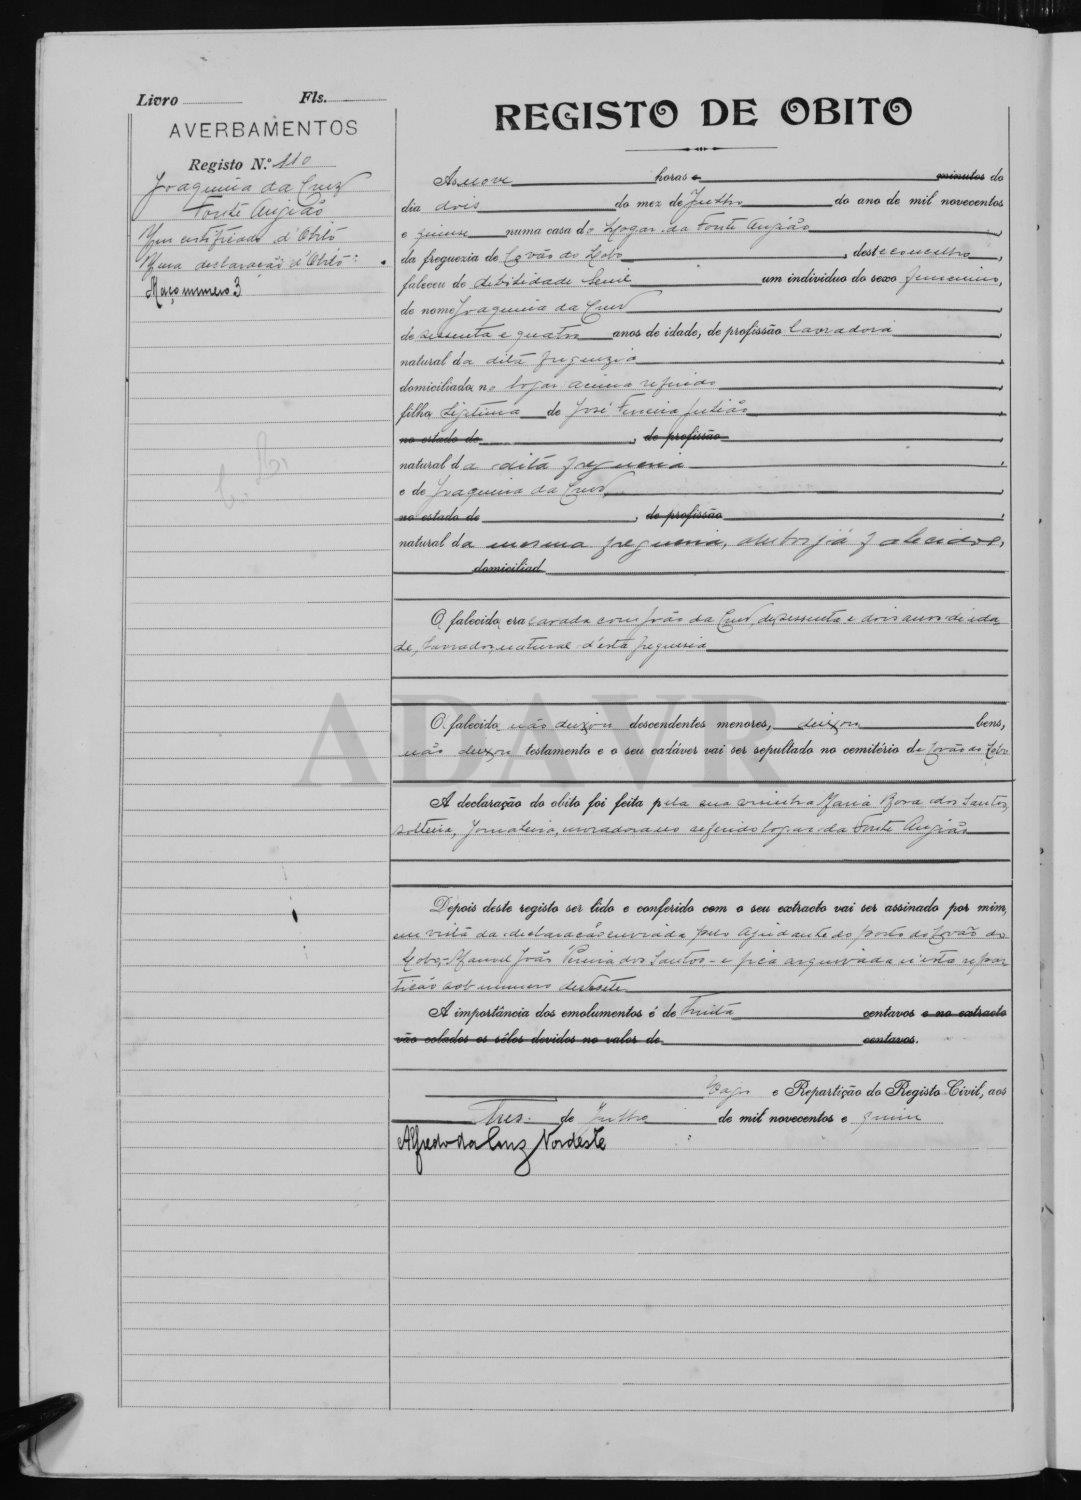 Livro Fls.
AVERBAMENTOS
Registo N.º 110
Joaquina da Cruz
Fonte Angião
Um certificado d'Obito
Uma declaração d'Obito
Maço numero 3
REGISTO DE OBITO
As nove horas e minutos do
dia dois do mez de Julho do ano de mil novecentos
e quinse numa casa do Logar da Fonte Angião,
da freguezia de Covão do Lobo, deste concelho,
faleceu de debilidade senil um individuo do sexo femenino,
de nome Joaquina da Cruz,
de sessenta e quatro anos de idade, de profissão lavradora,
natural da dita freguezia,
domiciliada no logar acima referido,
filha legitima de José Ferreira,
no estado de, de profissão,
natural da dita freguesia,
e de Joaquina da Cruz,
no estado de, de profissão,
natural da mesma freguesia, ambos já falecidos,
domiciliad
O falecida era casada com João da Cruz, de sessenta e dois anos de ida-
de, lavrador, natural d'esta freguesia
O falecida não deixou descendentes menores, deixou bens,
não deixou testamento e o seu cadáver vai ser sepultado no cemitério de Covão do Lobo
A declaração do obito foi feita pela sua visinha Maria Rosa dos Santos,
solteira, jornaleira, moradora no referido logar da Fonte Angião
Depois deste registo ser lido e conferido com o seu extracto vai ser assinado por mim,
em vista da declaração enviada pelo Ajudante do posto do Covão do
Lobo, Manuel João Pereira dos Santos - e fica arquivada n'esta repar-
tição sob numero
A importância dos emolumentos é de Trinta centavos e no extracto
vão colados os sêlos devidos no valor de centavos.
e Repartição do Registo Civil, aos
Tres de Julho de mil novecentos e quinse
Alfredo da Cruz Nordeste
ADAVR